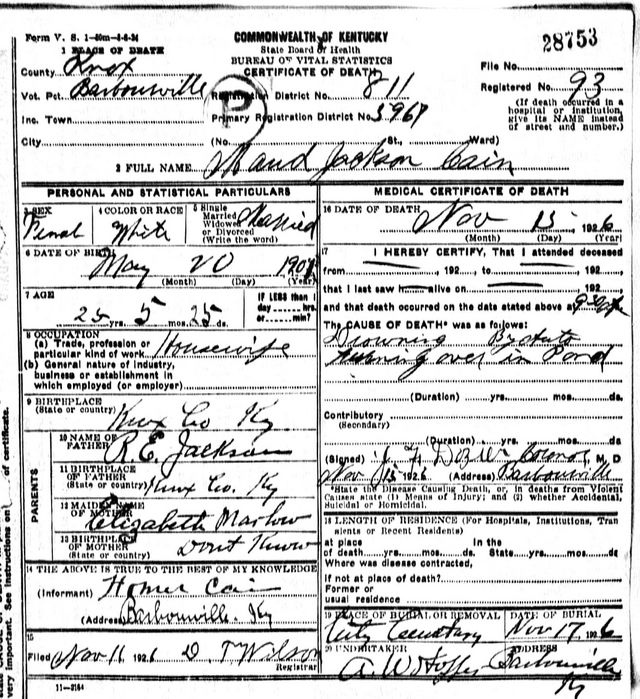 Form V. S. 1-50m-8-6-24
COMMONWEALTH OF KENTUCKY
28753
1 PLACE OF DEATH
State Board of Health
BUREAU OF VITAL STATISTICS
CERTIFICATE OF DEATH
File No.
County Knox
Registered No. 93
Vot. Pct. Barbourville Registration District No. 811
(If death occurred in a hospital or institution, give its NAME instead of street and number.)
P
Inc. Town Primary Registration District No. 5967
City (No. St., Ward)
2 FULL NAME Maud Jackson Cain
PERSONAL AND STATISTICAL PARTICULARS
3 SEX Femal
4 COLOR OR RACE White
5 Single Married Widowed or Divorced (Write the word) Married
6 DATE OF BIRTH May 20 190
(Month) (Day) (Year)
7 AGE 25 yrs. 5 mos. 25 ds.
IF LESS than 1 day hrs. or min?
8 OCCUPATION
(a) Trade, profession or particular kind of work Housewife
(b) General nature of industry, business or establishment in which employed (or employer)
9 BIRTHPLACE
(State or country) Knox Co Ky
10 NAME OF FATHER R. E. Jackson
11 BIRTHPLACE OF FATHER (State or country) Knox Co. Ky
PARENTS
12 MAIDEN NAME OF MOTHER Elizabeth Marlow
13 BIRTHPLACE OF MOTHER (State or country) Dont Know
14 THE ABOVE IS TRUE TO THE BEST OF MY KNOWLEDGE
(Informant) Homer Cain
(Address) Barbourville. Ky
15
Filed Nov 11 1926 D. T Wilson
Registrar
11-3164
MEDICAL CERTIFICATE OF DEATH
16 DATE OF DEATH Nov 15 1926
(Month) (Day) (Year)
17 I HEREBY CERTIFY, That I attended deceased
from 192 , to 192 ,
that I last saw h alive on 192 ,
and that death occurred on the date stated above at
The CAUSE OF DEATH* was as follows:
Drowning By Auto
turning over in Pond
(Duration) yrs. mos. ds.
Contributory
(Secondary)
(Duration) yrs. mos. ds.
(Signed) Dozier Coronor, M, D
Nov 15 1926 (Address) Barbourville
*State the Disease Causing Death, or, in deaths from Violent Causes state (1) Means of Injury; and (2) whether Accidental, Suicidal or Homicidal.
18 LENGTH OF RESIDENCE (For Hospitals, Institutions, Transients or Recent Residents)
at place In the
of death yrs. mos. ds. State yrs. mos. ds.
Where was disease contracted,
If not at place of death?
Former or
usual residence
19 PLACE OF BURIAL OR REMOVAL DATE OF BURIAL
City Cemetary Nov 17, 1926
20 UNDERTAKER ADDRESS
A. W Barbourville
Ky
very important. See instructions on of certificate.